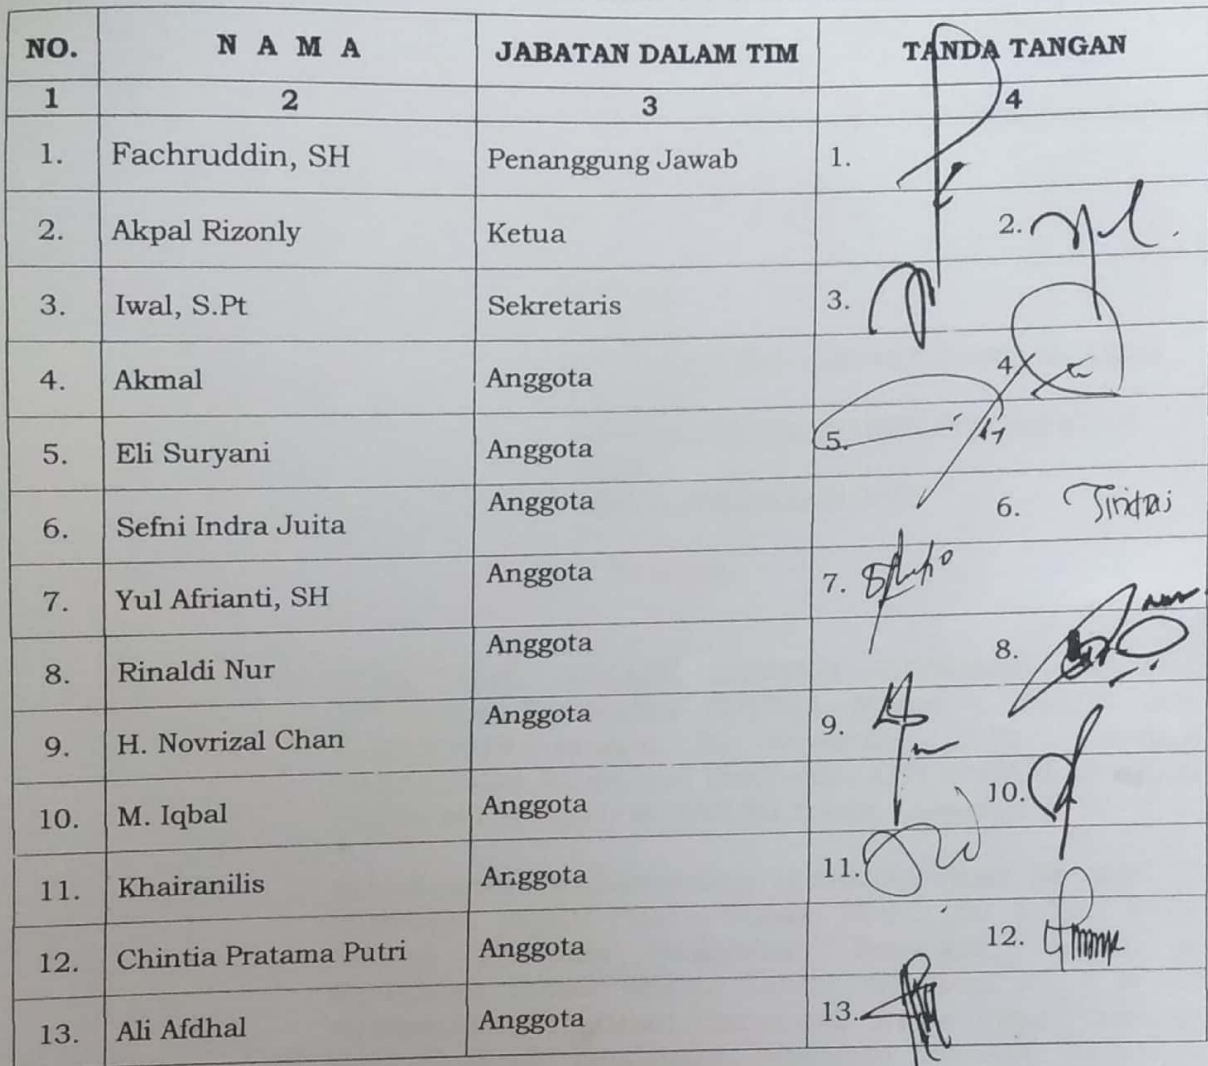 NO. N A M A JABATAN DALAM TIM TANDA TANGAN
1 2 3 4
1. Fachruddin, SH Penanggung Jawab 1.
2. Akpal Rizonly Ketua 2.
3. Iwal, S.Pt Sekretaris 3.
4. Akmal Anggota 4
5. Eli Suryani Anggota 5.
6. Sefni Indra Juita Anggota 6.
7. Yul Afrianti, SH Anggota 7.
8. Rinaldi Nur Anggota 8.
9. H. Novrizal Chan Anggota 9.
10. M. Iqbal Anggota 10.
11. Khairanilis Anggota 11.
12. Chintia Pratama Putri Anggota 12.
13. Ali Afdhal Anggota 13.